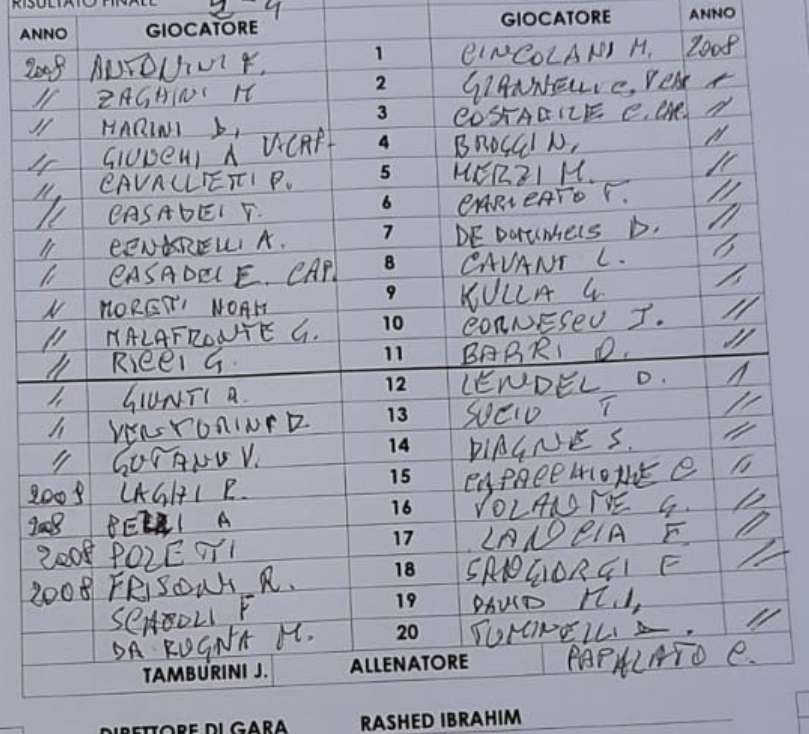 RISULTATO FINALE
ANNO GIOCATORE GIOCATORE ANNO
2008 ANTONINI F. 1 CINCOLANI M. 2008
// ZAGHINI M 2 GIANNELLI C. V CAP //
// MARINI D. 3 COSTABILE C. CAP. //
// GIUNCHI A V.CAP. 4 BROGGI N. //
// CAVALLETTI P. 5 MERZI M. //
// CASADEI T. 6 CARICATO T. //
// CENDRELLI A. 7 DE DOMINICIS D. //
// CASADEI E. CAP. 8 CAVANI L. //
// MORETTI NOAH 9 KULLA G. //
// MALAFRONTE G. 10 CORNESCU I. //
// RICCI G. 11 BARRI D. //
// GIUNTI A. 12 LENDEL D. //
// VENTORINI D 13 SUCIU T //
// V. 14 DIAGNE S. //
LAGHI R. 15 CAPACCHIONE C //
2008 A 16 VOLANTE G. //
2008 POZETTI 17 LANCIA F. //
2008 FRISONI R. 18 SANGIORGI F //
F 19 DAVID M.I.
DA RUGNA M. 20 TUMINELLI D. //
TAMBURINI J. ALLENATORE PAPALATO C.
DIRETTORE DI GARA RASHED IBRAHIM